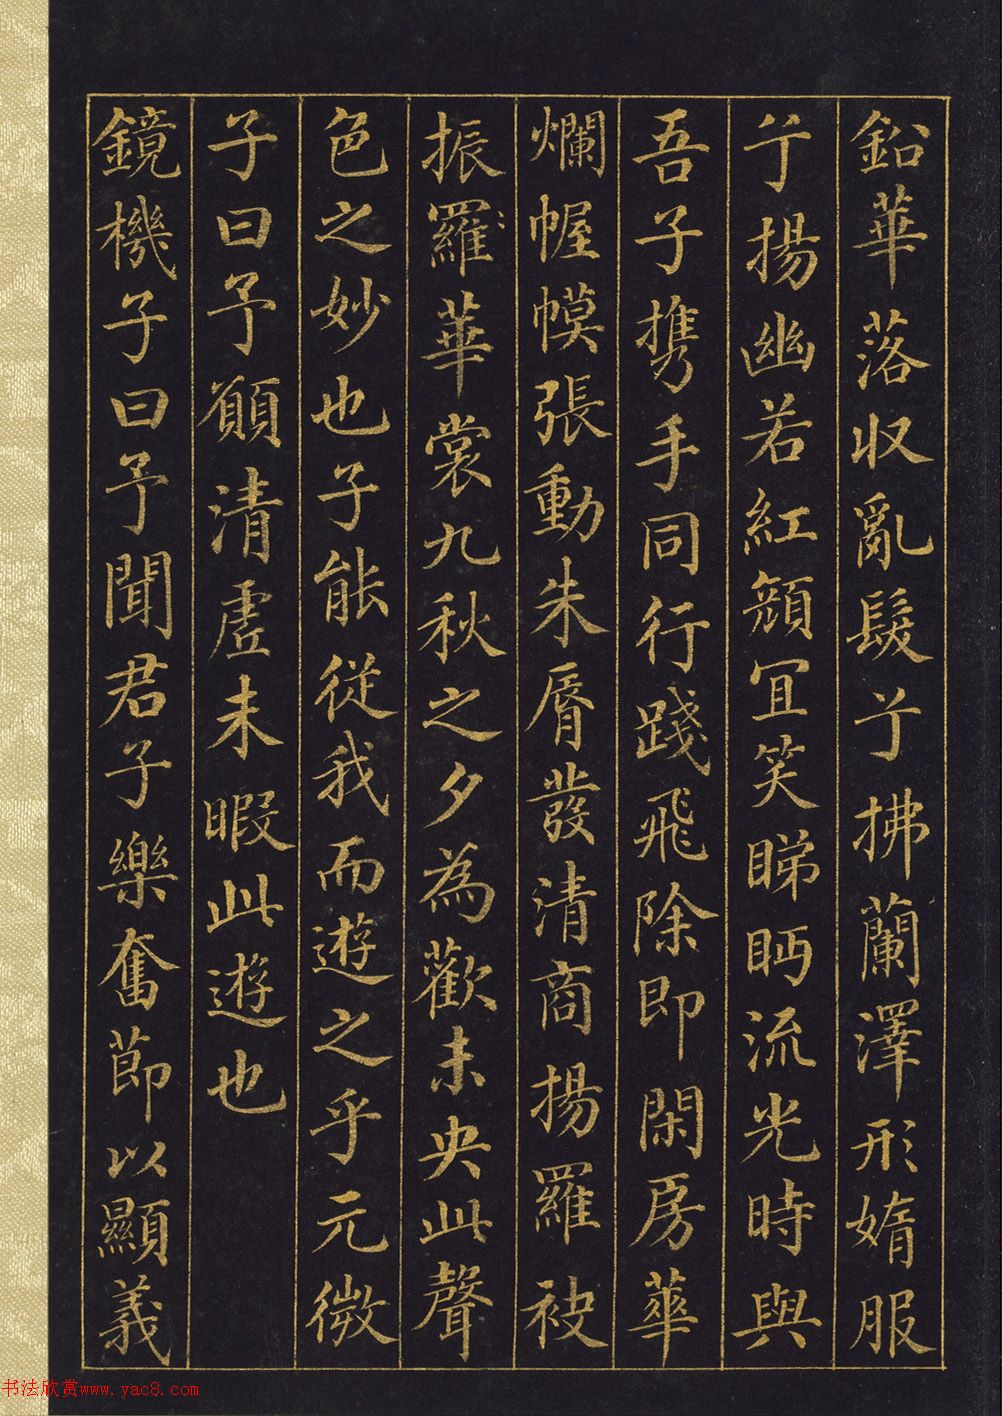 鉛華落収亂髮兮拂蘭澤形媠服
兮揚幽若紅顏宜笑睇眄流光時與
吾子携手同行踐飛除即閑房華
爛幄幙張動朱脣發清商揚羅袂
振羅華裳九秋之夕為歡未央此聲
色之妙也子能從我而遊之乎元微
子曰予願清虛未暇此遊也
鏡機子曰予聞君子樂奮節以顯義
书法欣赏www.yac8.com